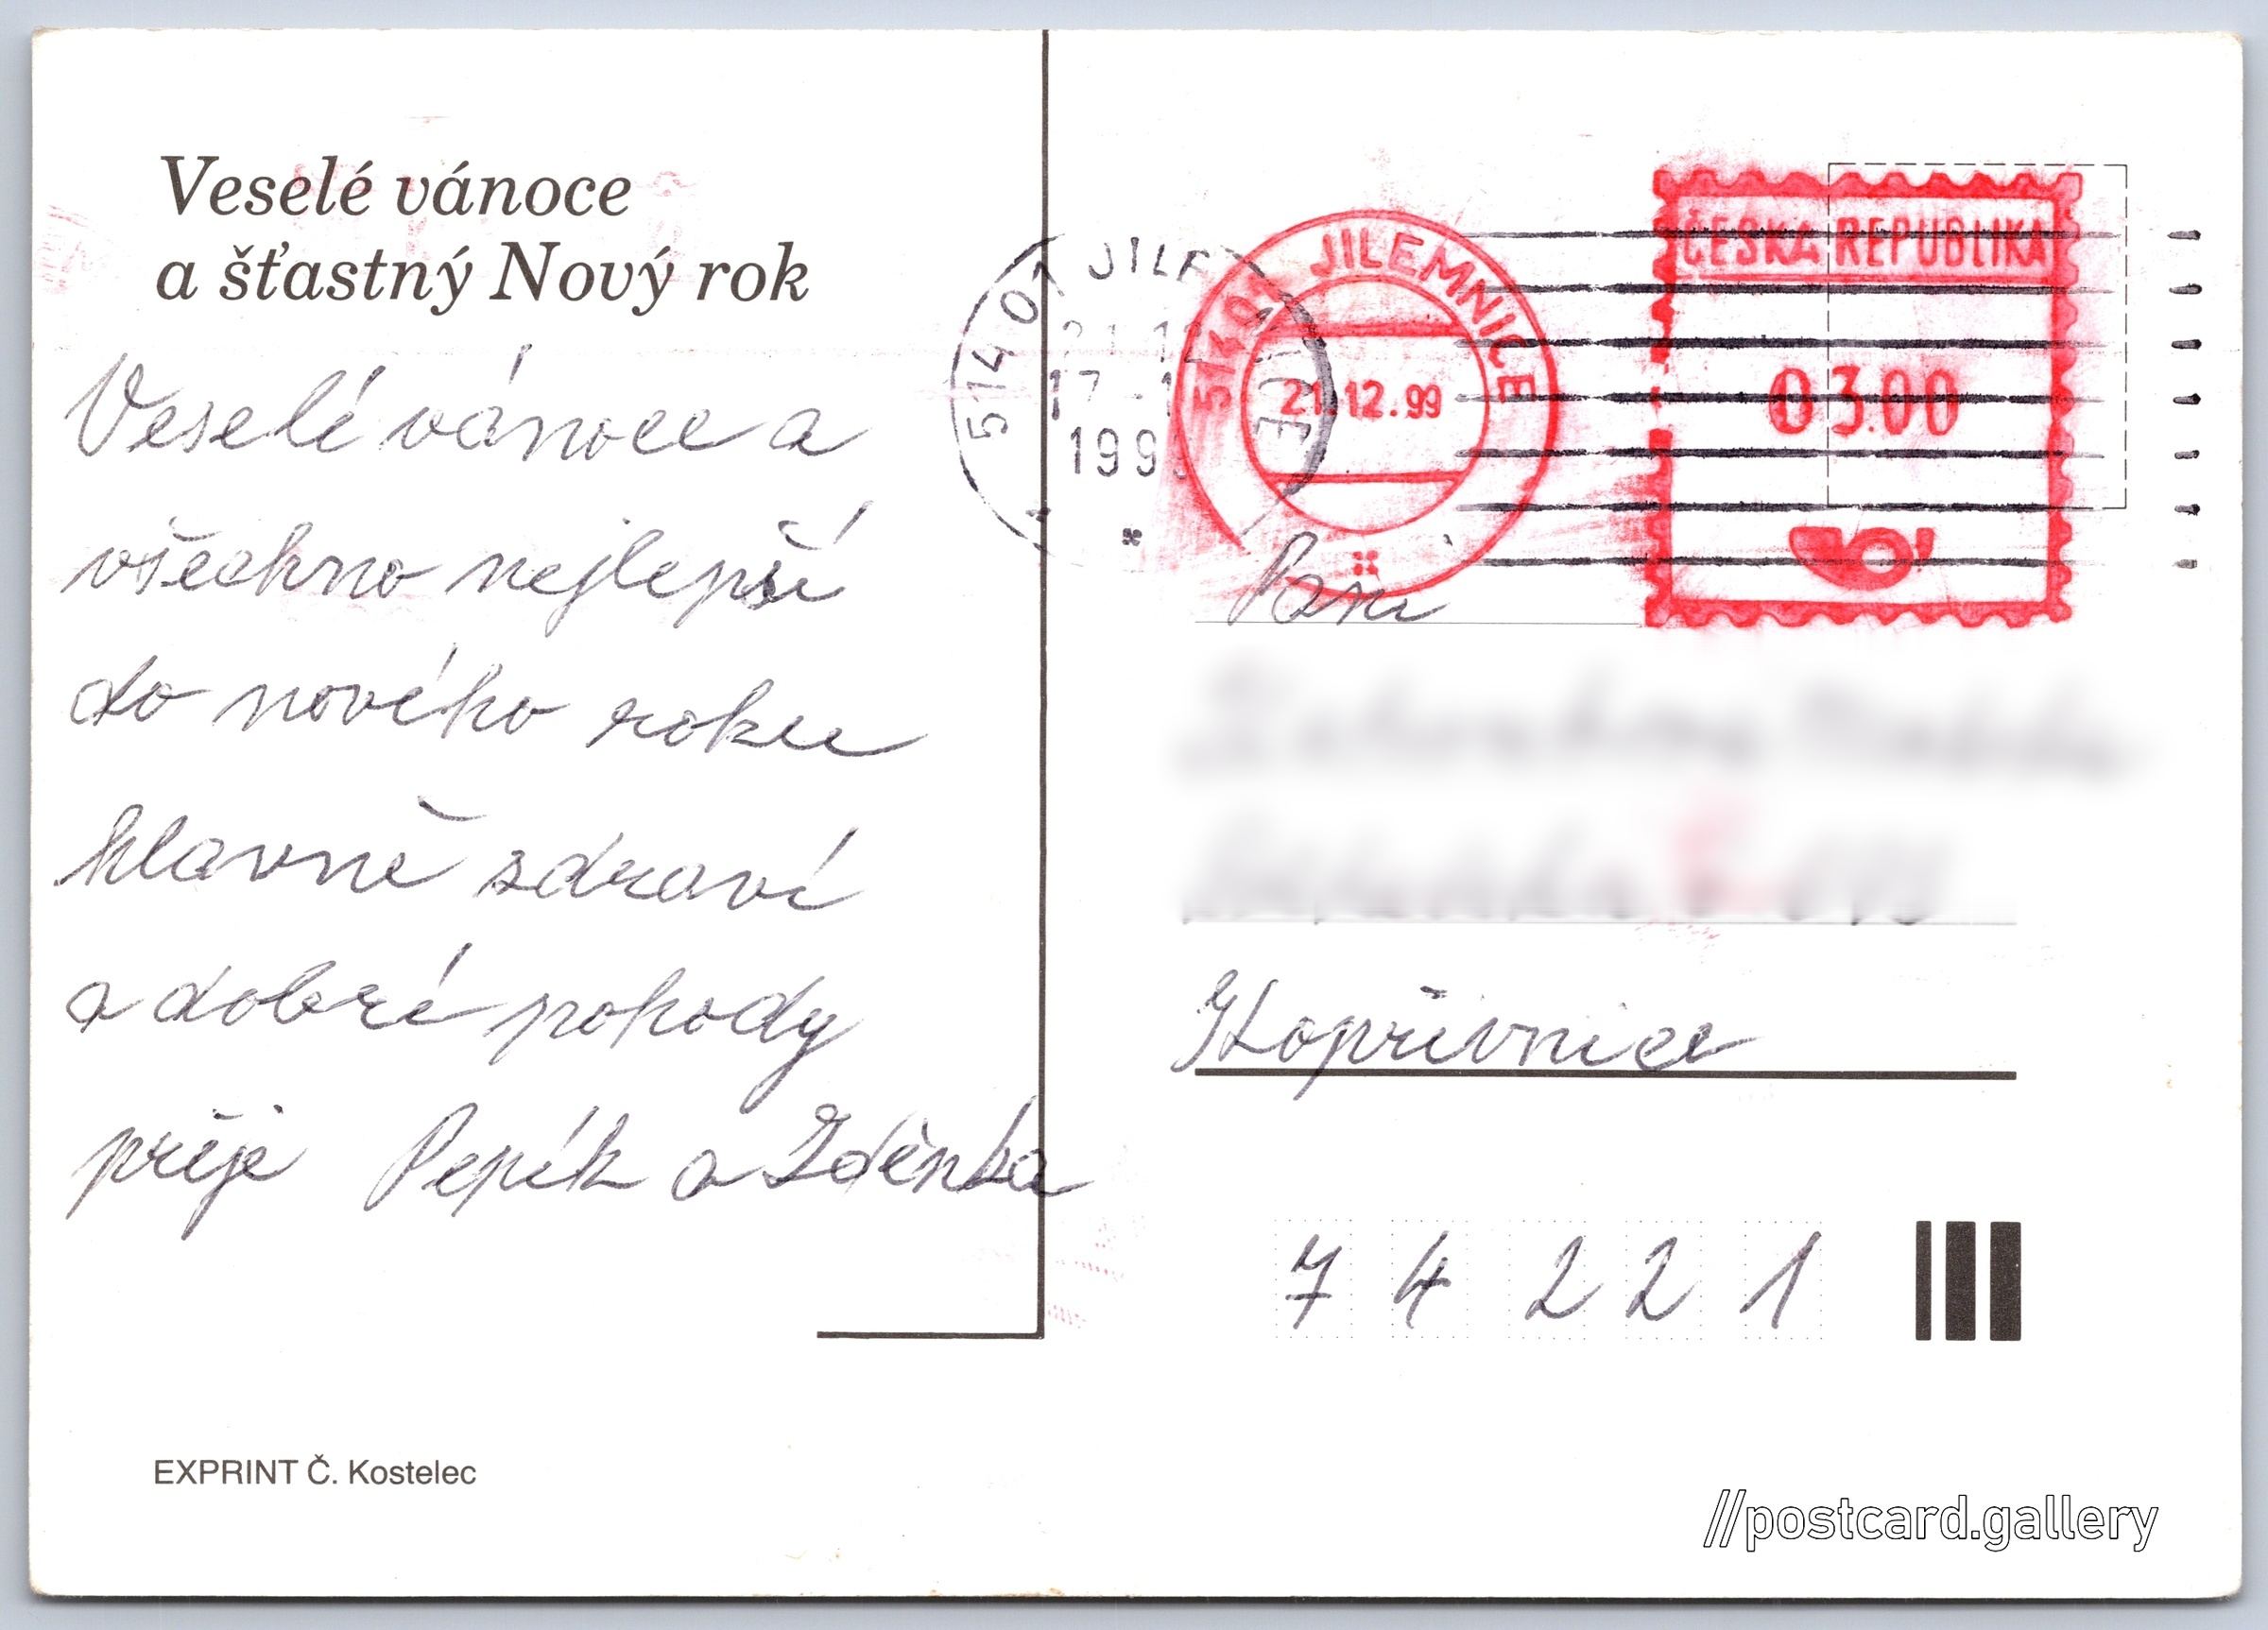 Veselé vánoce
a šťastný Nový rok
Veselé vánoce a
všechno nejlepší
do nového roku
hlavně zdraví
a dobré pohody
přeje Pepík a Zdeňka
EXPRINT Č. Kostelec
514 01 JILE
21.12
17-1
199
514 01 JILEMNICE
21.12.99
ČESKÁ REPUBLIKA
03.00
Paní
Kopřivnice
7 4 2 2 1
//postcard.gallery